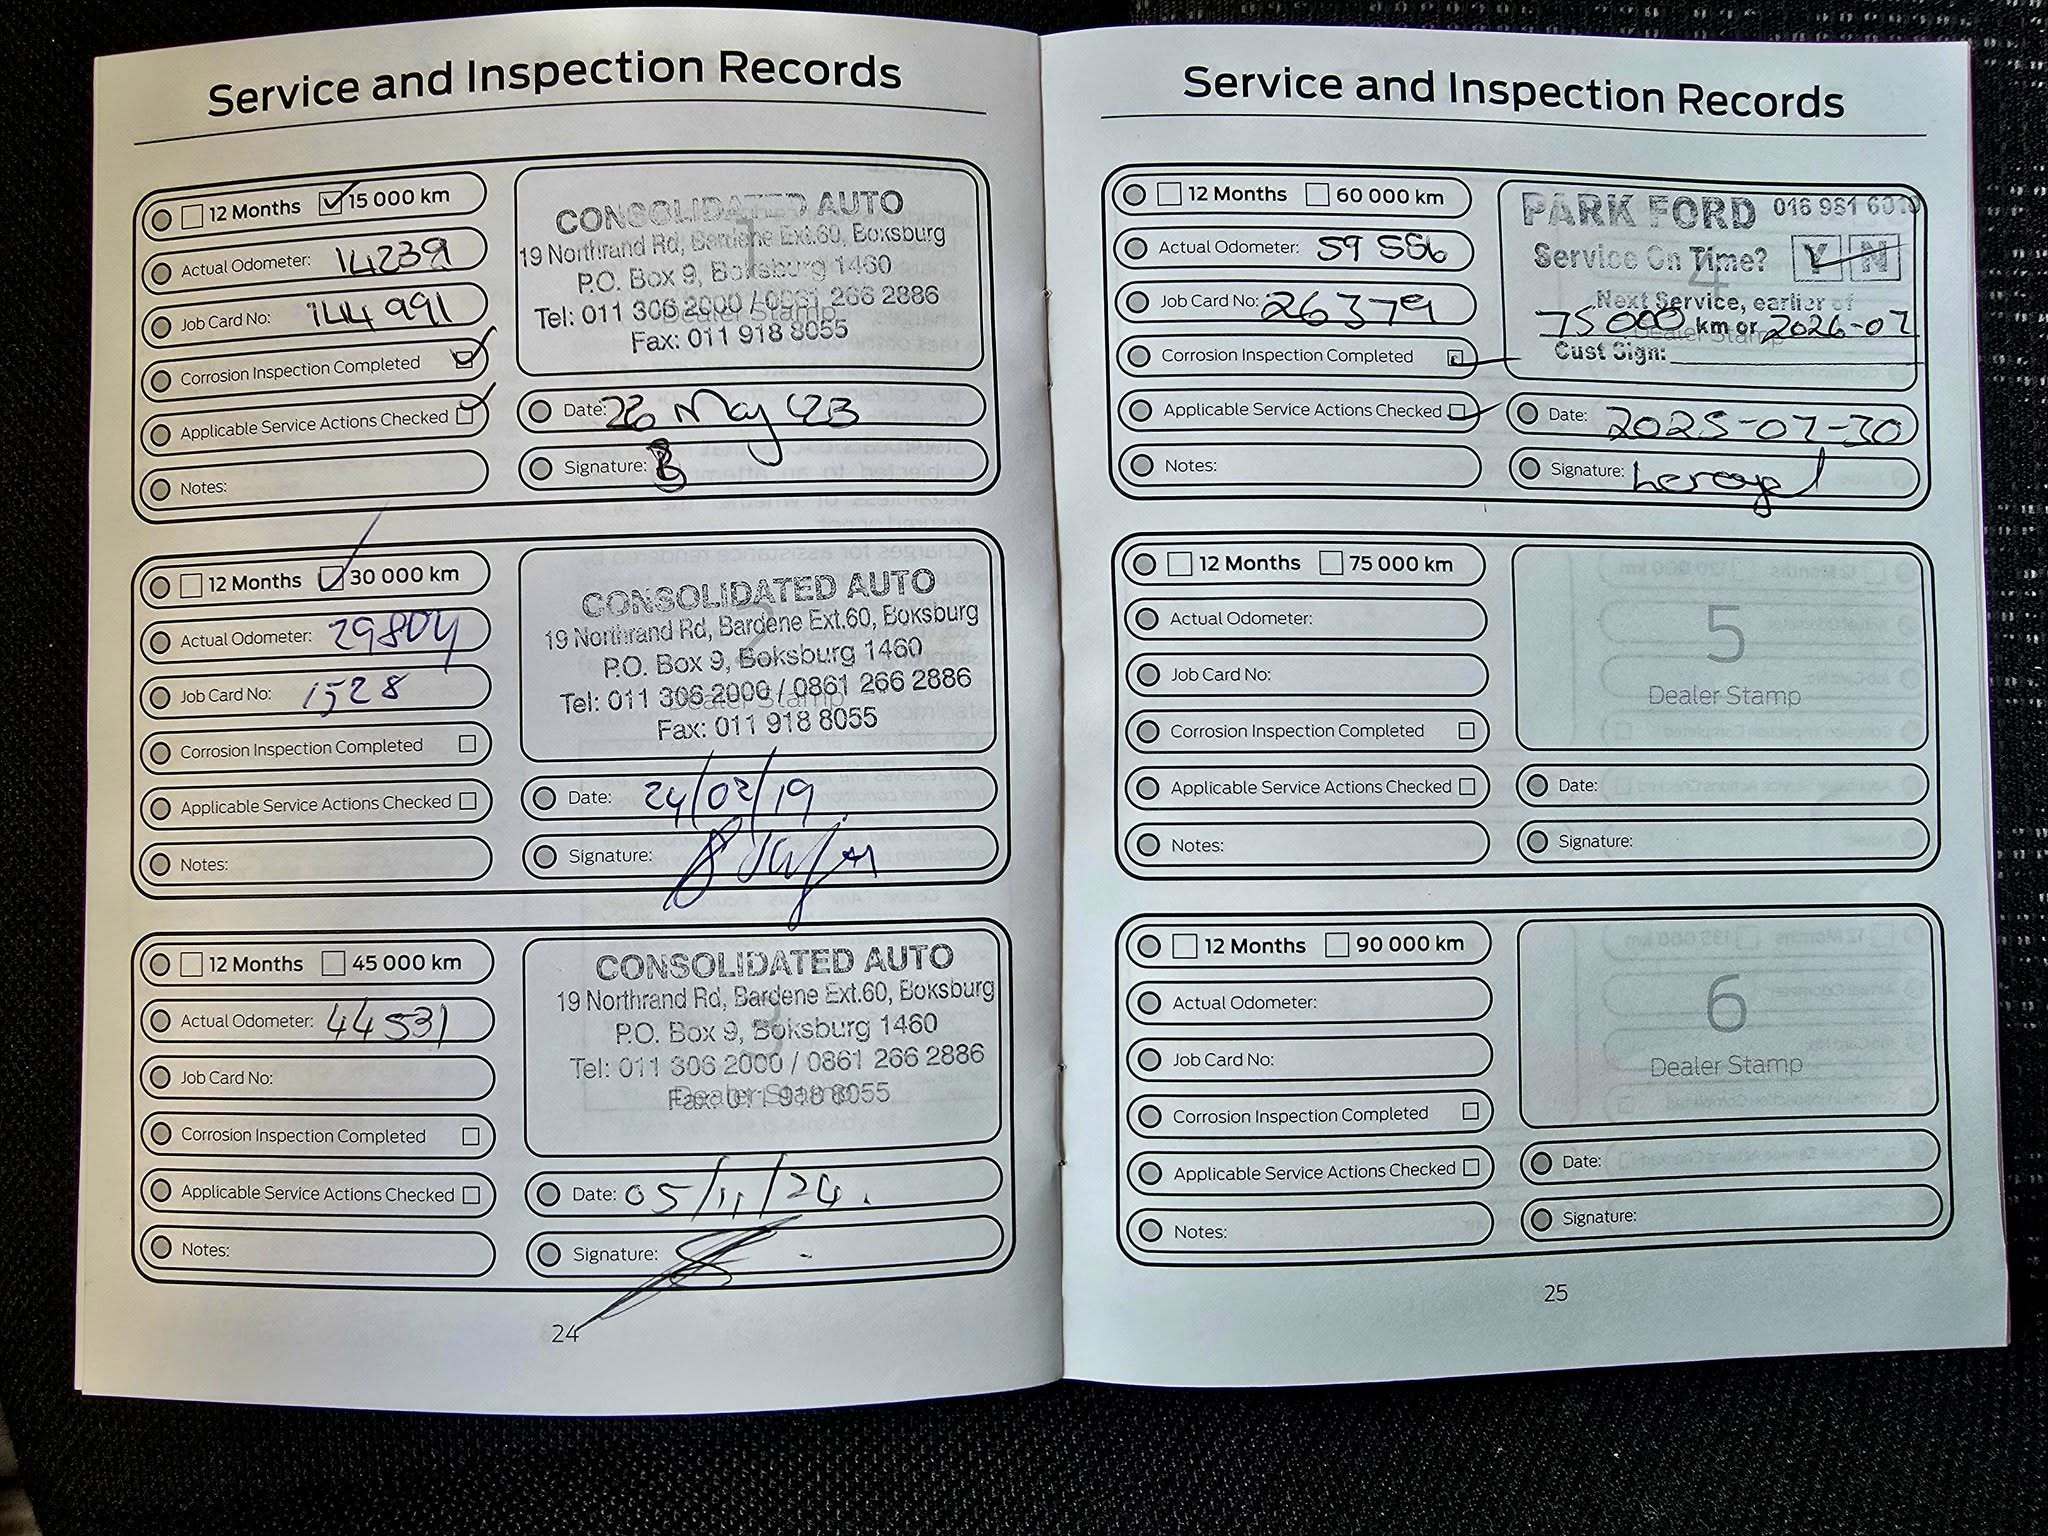 Service and Inspection Records
12 Months 15 000 km
Actual Odometer: 14239
Job Card No: 144991
Corrosion Inspection Completed
Applicable Service Actions Checked
Notes:
CONSOLIDATED AUTO
19 Northrand Rd, Bardene Ext.60, Boksburg
P.O. Box 9, Boksburg 1460
Tel: 011 306 2000 / 0861 266 2886
Dealer Stamp
Fax: 011 918 8055
Date: 26 May '23
Signature:
12 Months 30 000 km
Actual Odometer: 29804
Job Card No: 1528
Corrosion Inspection Completed
Applicable Service Actions Checked
Notes:
CONSOLIDATED AUTO
2
19 Northrand Rd, Bardene Ext.60, Boksburg
P.O. Box 9, Boksburg 1460
Tel: 011 306 2000 / 0861 266 2886
Dealer Stamp
Fax: 011 918 8055
Date: 24/02/19
Signature:
12 Months 45 000 km
Actual Odometer: 44531
Job Card No:
Corrosion Inspection Completed
Applicable Service Actions Checked
Notes:
CONSOLIDATED AUTO
19 Northrand Rd, Bardene Ext.60, Boksburg
3
P.O. Box 9, Boksburg 1460
Tel: 011 306 2000 / 0861 266 2886
Dealer Stamp
Fax: 011 918 8055
Date: 05/11/24.
Signature:
24
Service and Inspection Records
12 Months 60 000 km
Actual Odometer: 59586
Job Card No: 26379
Corrosion Inspection Completed
Applicable Service Actions Checked
Notes:
PARK FORD 016 981 6010
Service On Time? Y N
4
Next Service, earlier of
75000 km or 2026-07
Dealer Stamp
Cust Sign:
Date: 2025-07-30
Signature:
12 Months 75 000 km
Actual Odometer:
Job Card No:
Corrosion Inspection Completed
Applicable Service Actions Checked
Notes:
5
Dealer Stamp
Date:
Signature:
12 Months 90 000 km
Actual Odometer:
Job Card No:
Corrosion Inspection Completed
Applicable Service Actions Checked
Notes:
6
Dealer Stamp
Date:
Signature:
25